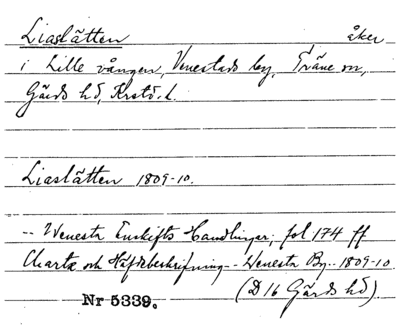 Liaslätten åker
i Lille vången, Venestads by, Träne sn,
Gärds hd, Krstd. l.
Liaslätten 1809-10.
-- Wenesta Enskifts Handlingar, fol 174 ff
Charta och Häfdebeskrifning -- Wenesta By -- 1809-10
(D 16 Gärds hd)
Nr 5339.